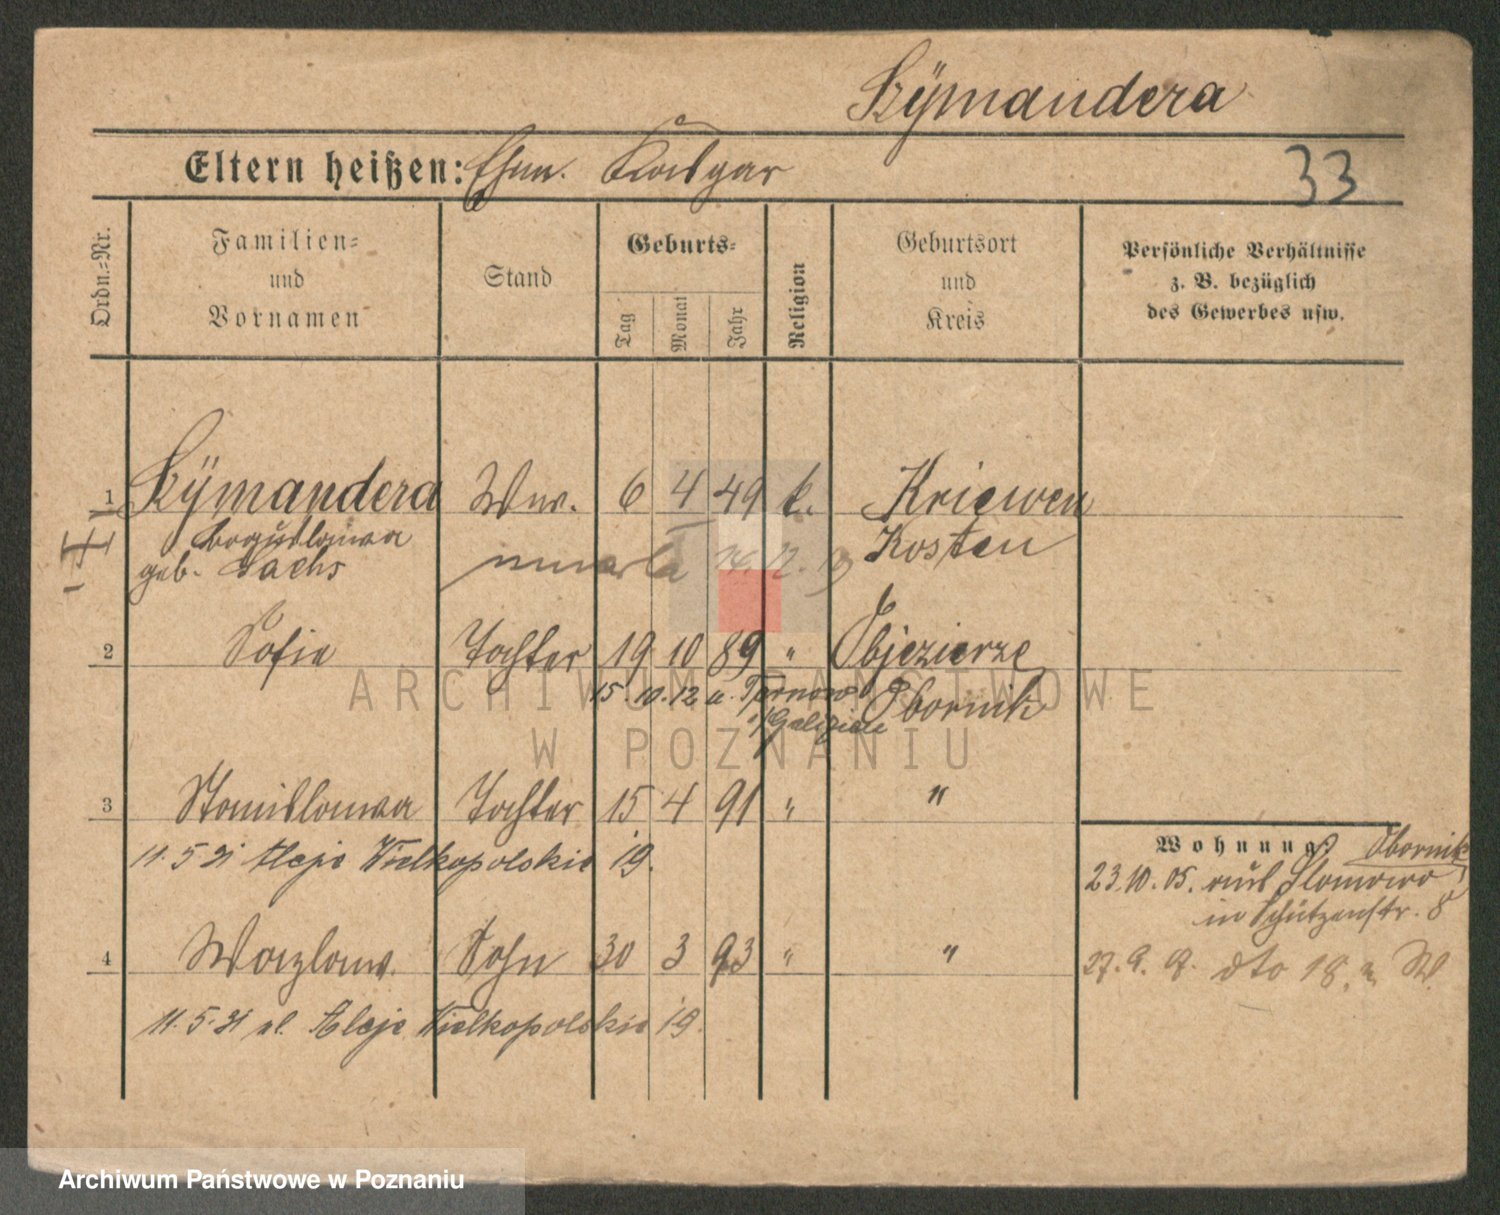 Szymandera
Eltern heißen: Ehm. Kasper
33
Ordn.-Nr.
Familien-
und
Vornamen
Stand
Geburts-
Tag
Monat
Jahr
Religion
Geburtsort
und
Kreis
Persönliche Verhältnisse
z. B. bezüglich
des Gewerbes usw.
1 Szymandera Wwe. 6 4 49 k. Kriewen
Boguslawa Kosten
geb. Sachs umarła
2 Sofie Tochter 19 10 89 " Objezierze
15.10.12 n. Tarnow Obornik
i/Galizien
3 Stanislawa Tochter 15 4 91 " "
11.5.21 Aleje Wielkopolskie 19.
Wohnung: Obornik
23.10.05. aus Slomowo
in Schützenstr. 8
4 Wazlaw. Sohn 30 3 93 " "
27.9.9. dto 18. W.
11.5.21 ul. Aleje Wielkopolskie 19.
ARCHIWUM PAŃSTWOWE
W POZNANIU
Archiwum Państwowe w Poznaniu